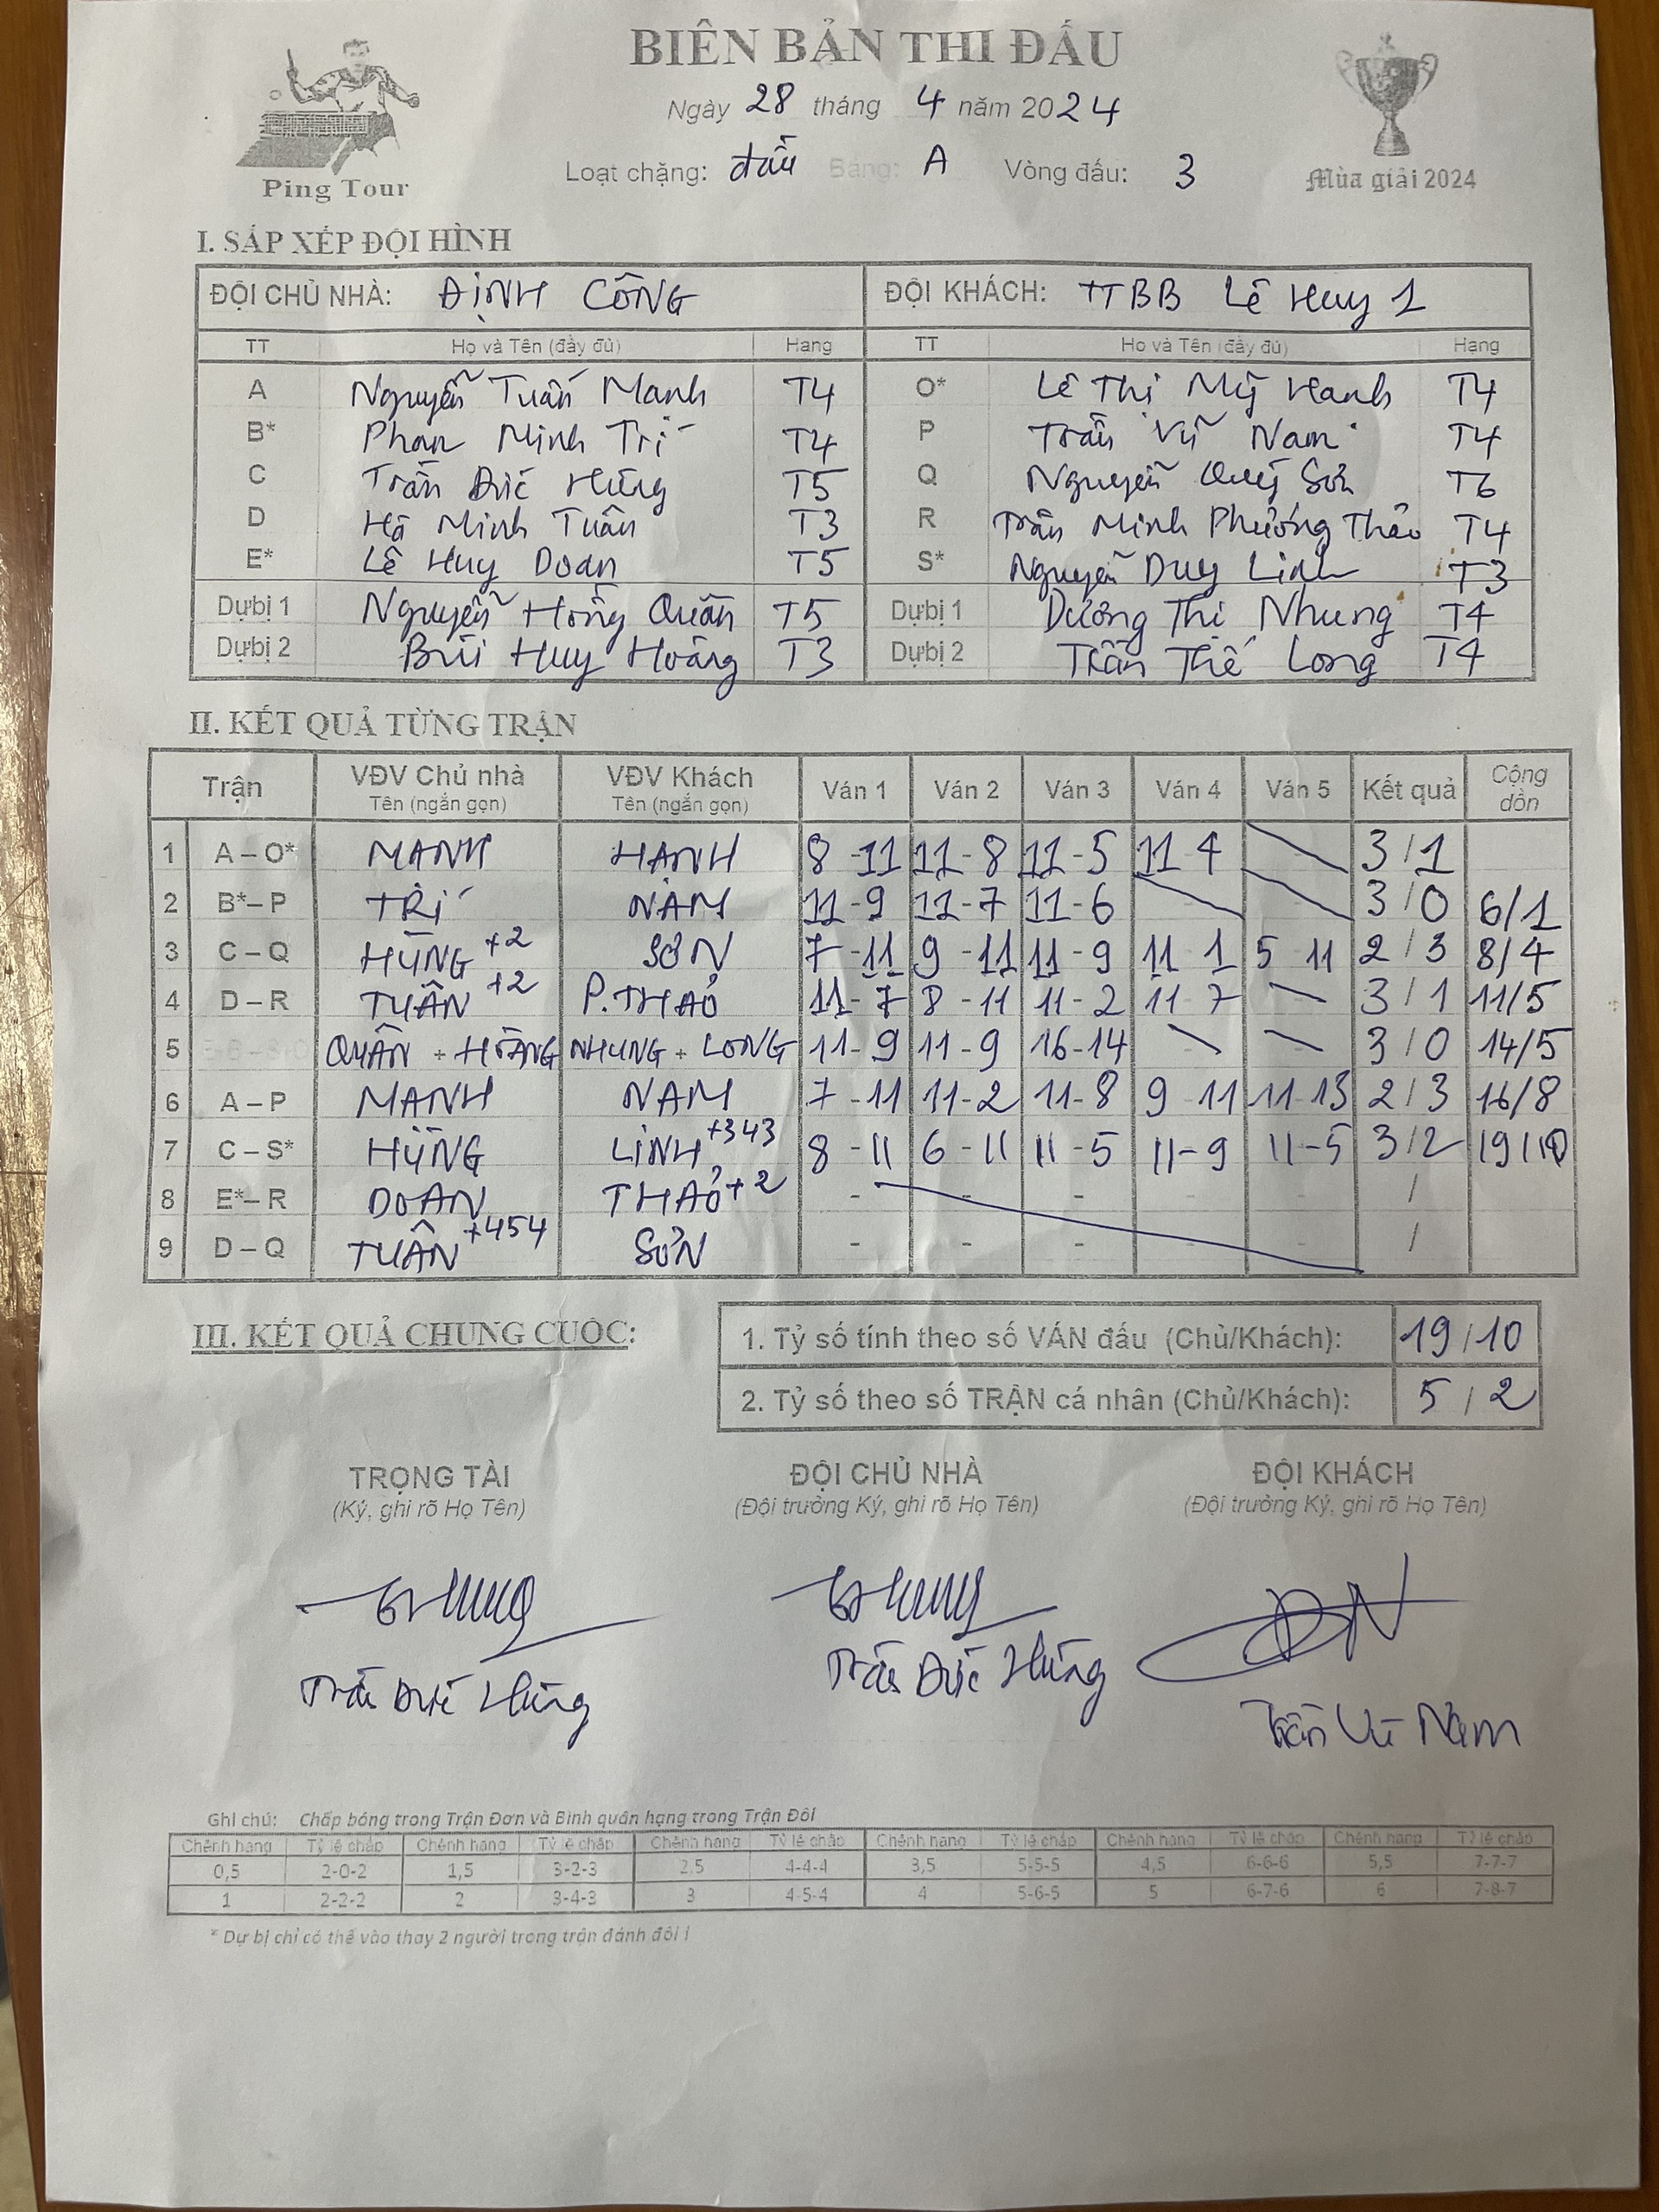 BIÊN BẢN THI ĐẤU
Ngày 28 tháng 4 năm 2024
Loạt chặng: đấu Bảng: A Vòng đấu: 3
Ping Tour
Mùa giải 2024
I. SẮP XẾP ĐỘI HÌNH
ĐỘI CHỦ NHÀ: ĐỊNH CÔNG ĐỘI KHÁCH: TTBB Lê Huy 1
TT Họ và Tên (đầy đủ) Hạng TT Họ và Tên (đầy đủ) Hạng
A Nguyễn Tuấn Mạnh T4 O* Lê Thị Mỹ Hạnh T4
B* Phan Minh Trí T4 P Trần Vũ Nam T4
C Trần Đức Hùng T5 Q Nguyễn Quý Sơn T6
D Hà Minh Tuân T3 R Trần Minh Phương Thảo T4
E* Lê Huy Doan T5 S* Nguyễn Duy Linh T3
Dự bị 1 Nguyễn Hồng Quân T5 Dự bị 1 Dương Thị Nhung T4
Dự bị 2 Bùi Huy Hoàng T3 Dự bị 2 Trần Thế Long T4
II. KẾT QUẢ TỪNG TRẬN
Trận VĐV Chủ nhà VĐV Khách Ván 1 Ván 2 Ván 3 Ván 4 Ván 5 Kết quả Cộng dồn
Tên (ngắn gọn) Tên (ngắn gọn)
1 A – O* MẠNH HẠNH 8 - 11 11 - 8 11 - 5 11 4 3 / 1
2 B* – P TRÍ NAM 11 - 9 11 - 7 11 - 6 3 / 0 6/1
3 C – Q HÙNG +2 SƠN 7 - 11 9 - 11 11 - 9 11 1 5 11 2 / 3 8/4
4 D – R TUÂN +2 P.THẢO 11 - 7 8 - 11 11 - 2 11 7 3 / 1 11/5
5 QUÂN + HOÀNG NHUNG + LONG 11 - 9 11 - 9 16 - 14 3 / 0 14/5
6 A – P MẠNH NAM 7 - 11 11 - 2 11 - 8 9 11 11 - 13 2 / 3 16/8
7 C – S* HÙNG LINH +343 8 - 11 6 - 11 11 - 5 11 - 9 11 - 5 3 / 2 19/10
8 E* – R DOAN THẢO +2 - - - - - /
9 D – Q TUÂN +454 SƠN - - - - - /
III. KẾT QUẢ CHUNG CUỘC:
1. Tỷ số tính theo số VÁN đấu (Chủ/Khách): 19 / 10
2. Tỷ số theo số TRẬN cá nhân (Chủ/Khách): 5 / 2
TRỌNG TÀI ĐỘI CHỦ NHÀ ĐỘI KHÁCH
(Ký, ghi rõ Họ Tên) (Đội trưởng Ký, ghi rõ Họ Tên) (Đội trưởng Ký, ghi rõ Họ Tên)
Trần Đức Hùng Trần Đức Hùng Trần Vũ Nam
Ghi chú: Chấp bóng trong Trận Đơn và Bình quân hạng trong Trận Đôi
Chênh hạng Tỷ lệ chấp Chênh hạng Tỷ lệ chấp Chênh hạng Tỷ lệ chấp Chênh hạng Tỷ lệ chấp Chênh hạng Tỷ lệ chấp Chênh hạng Tỷ lệ chấp
0,5 2-0-2 1,5 3-2-3 2,5 4-4-4 3,5 5-5-5 4,5 6-6-6 5,5 7-7-7
1 2-2-2 2 3-4-3 3 4-5-4 4 5-6-5 5 6-7-6 6 7-8-7
* Dự bị chỉ có thể vào thay 2 người trong trận đánh đôi !